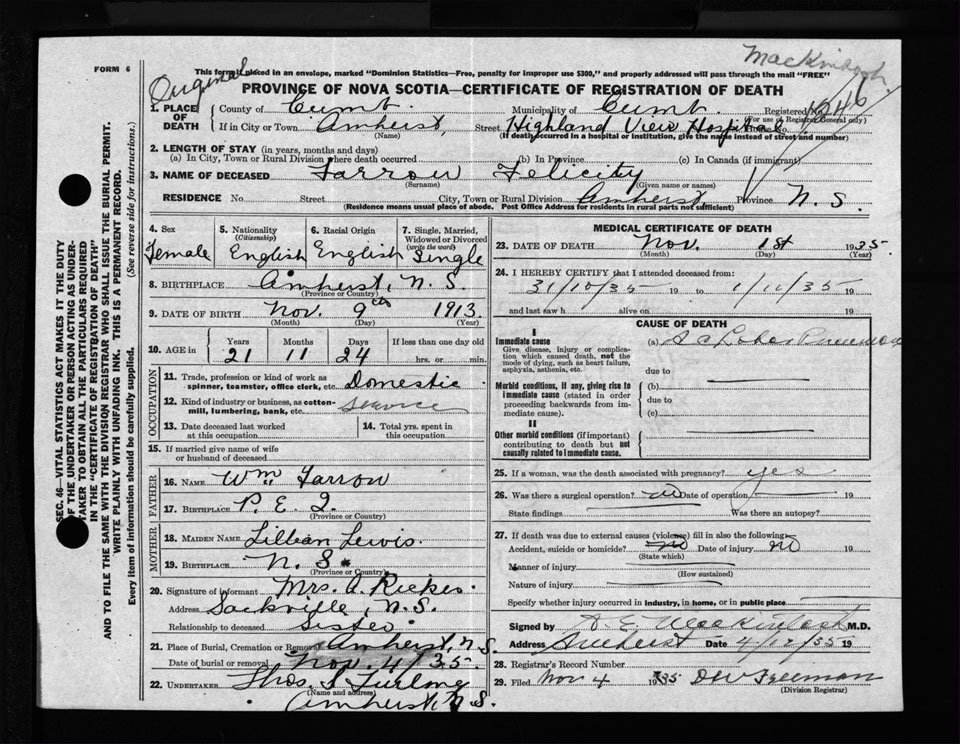 MacKintosh
FORM 6
Original
This form if placed in an envelope, marked "Dominion Statistics—Free, penalty for improper use $300," and properly addressed will pass through the mail "FREE"
PROVINCE OF NOVA SCOTIA—CERTIFICATE OF REGISTRATION OF DEATH
1. PLACE OF DEATH
County of Cumb. Municipality of Cumb. Registered No. 1246
(For use of Registrar General only)
If in City or Town Amherst, Street Highland View Hospital House No.
(Name) (If death occurred in a hospital or institution, give the name instead of street and number)
2. LENGTH OF STAY (in years, months and days)
(a) In City, Town or Rural Division where death occurred (b) In Province (c) In Canada (if immigrant)
3. NAME OF DECEASED Farrow Felicity
(Surname) (Given name or names)
RESIDENCE No. Street City, Town or Rural Division Amherst, Province N. S.
(Residence means usual place of abode. Post Office Address for residents in rural parts not sufficient)
4. Sex Female
5. Nationality (Citizenship) English
6. Racial Origin English
7. Single, Married, Widowed or Divorced (write the word) Single
8. BIRTHPLACE Amherst, N. S.
(Province or Country)
9. DATE OF BIRTH Nov. 9th 1913
(Month) (Day) (Year)
10. AGE in Years 21 Months 11 Days 24 If less than one day old hrs. or min.
OCCUPATION
11. Trade, profession or kind of work as spinner, teamster, office clerk, etc. Domestic
12. Kind of industry or business, as cotton-mill, lumbering, bank, etc. Service
13. Date deceased last worked at this occupation
14. Total yrs. spent in this occupation
15. If married give name of wife or husband of deceased
FATHER
16. NAME Wm Farrow
17. BIRTHPLACE P. E. I.
(Province or Country)
MOTHER
18. MAIDEN NAME Lillian Lewis.
19. BIRTHPLACE N. S.
(Province or Country)
20. Signature of informant Mrs. A.
Address Sackville, N. S.
Relationship to deceased Sister
21. Place of Burial, Cremation or Removal Amherst, N. S.
Date of burial or removal Nov. 4/35.
22. UNDERTAKER Thos. Furlong
(Name and address)
Amherst, N. S.
MEDICAL CERTIFICATE OF DEATH
23. DATE OF DEATH Nov. 1st 1935
(Month) (Day) (Year)
24. I HEREBY CERTIFY that I attended deceased from:
31/10/35 19 to 1/11/35 19
and last saw h alive on 19
CAUSE OF DEATH
I
Immediate cause
Give disease, injury or complication which caused death, not the mode of dying, such as heart failure, asphyxia, asthenia, etc.
(a) Lobar Pneumonia
due to
Morbid conditions, if any, giving rise to immediate cause (stated in order proceeding backwards from immediate cause).
(b)
due to
(c)
II
Other morbid conditions (if important) contributing to death but not causally related to immediate cause.
25. If a woman, was the death associated with pregnancy? yes
26. Was there a surgical operation? no Date of operation 19
State findings Was there an autopsy?
27. If death was due to external causes (violence) fill in also the following:
Accident, suicide or homicide? no Date of injury no 19
(State which)
Manner of injury
(How sustained)
Nature of injury
Specify whether injury occurred in industry, in home, or in public place
Signed by A. E. MacKintosh M.D.
Address Amherst Date 4/12/35 19
28. Registrar's Record Number
29. Filed Nov 4 1935 D W Freeman
(Division Registrar)
SEC. 46 VITAL STATISTICS ACT MAKES IT THE DUTY
OF THE UNDERTAKER OR PERSON ACTING AS UNDER-
TAKER TO OBTAIN ALL THE PARTICULARS REQUIRED
IN THE "CERTIFICATE OF REGISTRATION OF DEATH"
AND TO FILE THE SAME WITH THE DIVISION REGISTRAR WHO SHALL ISSUE THE BURIAL PERMIT.
WRITE PLAINLY WITH UNFADING INK. THIS IS A PERMANENT RECORD.
Every item of information should be carefully supplied. (See reverse side for instructions.)